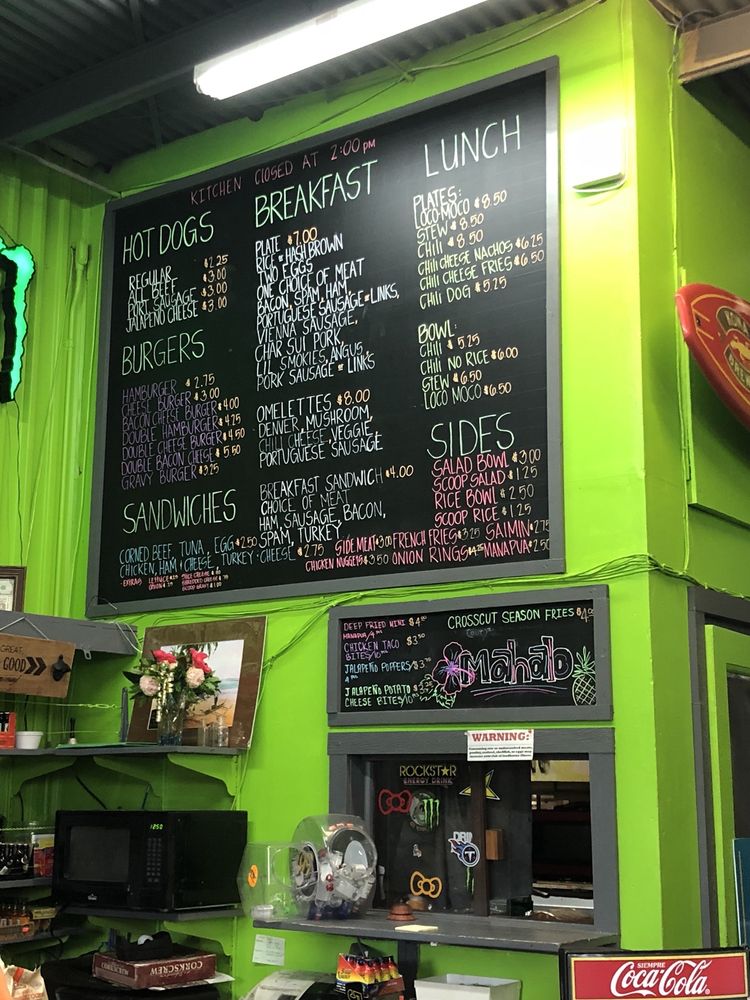 KITCHEN CLOSED AT 2:00 PM
HOT DOGS
REGULAR $2.25
ALL BEEF $3.00
PORT SAUSAGE $3.00
JALAPEÑO CHEESE $3.00
BURGERS
HAMBURGER $2.75
CHEESE BURGER $3.00
BACON CHEESE BURGER $4.00
DOUBLE HAMBURGER $4.25
DOUBLE CHEESE BURGER $4.50
DOUBLE BACON CHEESE $5.50
GRAVY BURGER $3.25
SANDWICHES
CORNED BEEF, TUNA, EGG $2.50
CHICKEN, HAM & CHEESE, TURKEY & CHEESE $2.75
EXTRAS
BREAKFAST
PLATE $7.00
RICE or HASH BROWN
TWO EGGS
ONE CHOICE OF MEAT
BACON, SPAM, HAM,
PORTUGUESE SAUSAGE or LINKS,
VIENNA SAUSAGE,
CHAR SUI PORK,
LIL SMOKIES, ANGUS,
PORK SAUSAGE or LINKS
OMELETTES $8.00
DENVER, MUSHROOM,
CHILI CHEESE, VEGGIE,
PORTUGUESE SAUSAGE
BREAKFAST SANDWICH $4.00
CHOICE OF MEAT
HAM, SAUSAGE, BACON,
SPAM, TURKEY
LUNCH
PLATES:
LOCO-MOCO $8.50
STEW $8.50
CHILI $8.50
CHILI CHEESE NACHOS $6.25
CHILI CHEESE FRIES $6.50
CHILI DOG $5.25
BOWL:
CHILI $5.25
CHILI NO RICE $6.00
STEW $6.50
LOCO MOCO $6.50
SIDES
SALAD BOWL $3.00
SCOOP SALAD $1.25
RICE BOWL $2.50
SCOOP RICE $1.25
SIDE MEAT $3.00 FRENCH FRIES $3.25 SAIMIN $2.75
CHICKEN NUGGETS $3.50 ONION RINGS $4.25 MANAPUA $2.50
DEEP FRIED MINI
MANAPUA/4 pcs
CHICKEN TACO $3.50
BITES/10 pcs
JALAPEÑO POPPERS/
JALAPEÑO POTATO
CHEESE BITES/10 pcs
CROSSCUT SEASON FRIES
Mahalo
WARNING:
ROCKSTAR
ENERGY DRINK
GOOD
1250
CORKSCREW
SIEMPRE
Coca-Cola